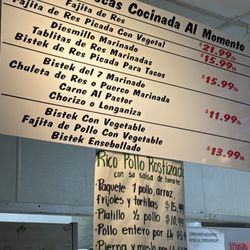 cas Cocinada Al Momento
Fajita de Res
Fajita de Res Picada Con Vegetal
Diesmillo Marinado
Tablitas de Res Marinadas
Bistek de Res Picada Para Tacos
$21.99lb
$15.99lb
Bistek del 7 Marinado
Chuleta de Res o Puerco Marinada
Carne Al Pastor
Chorizo o Longaniza
$15.99lb
$11.99lb
Bistek Con Vegetable
Fajita de Pollo Con Vegetable
Bistek Ensebollado
$13.99lb
Rico Pollo Rostizad
con su salsa de tomate
-Paquete 1 pollo, arroz,
frijoles y tortillas $15.99
-Platillo ½ pollo $10.99
Pollo entero por lb $5
-Pierna y muslo por l